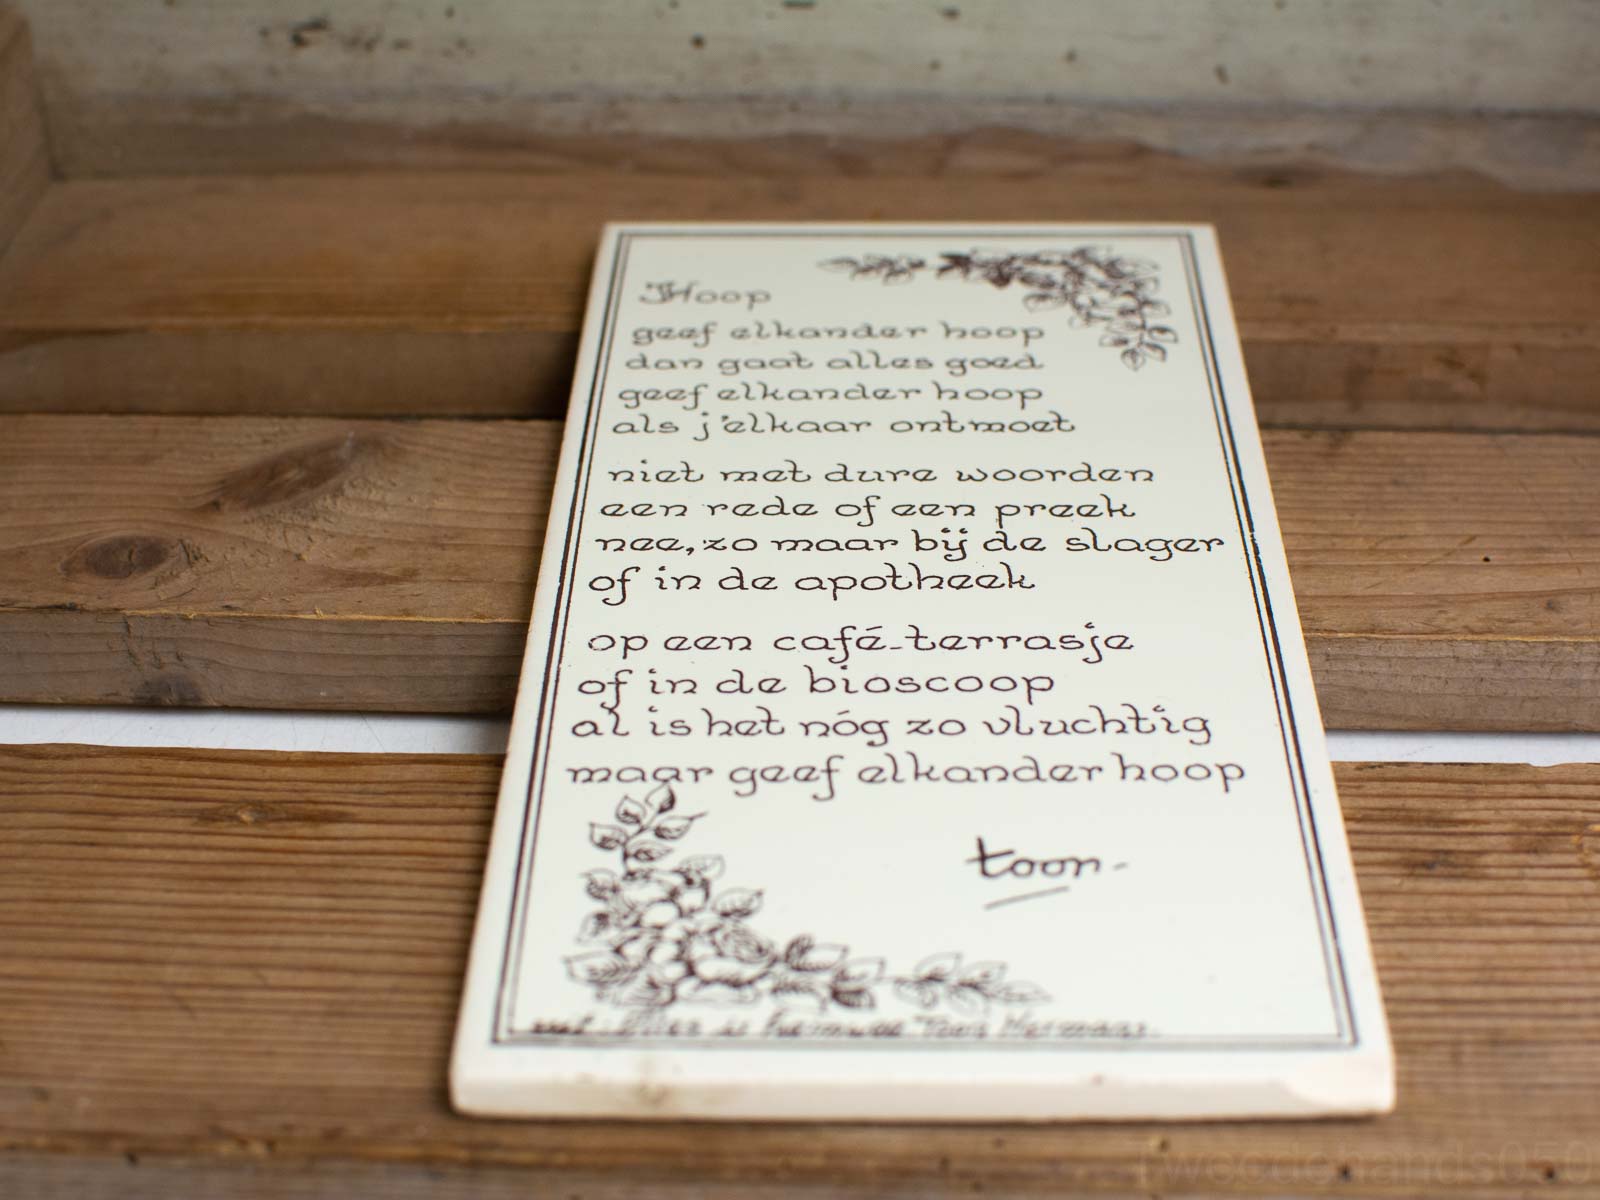 Hoop
geef elkander hoop
dan gaat alles goed
geef elkander hoop
als j'elkaar ontmoet
niet met dure woorden
een rede of een preek
nee, zo maar bij de slager
of in de apotheek
op een café-terrasje
of in de bioscoop
al is het nóg zo vluchtig
maar geef elkander hoop
toon-
uit: Alles is heimwee Toon Hermans.